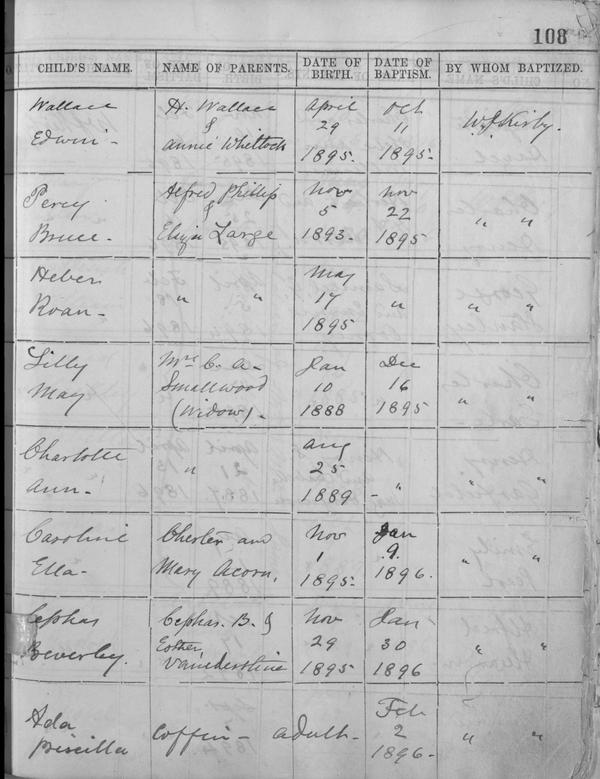 108
CHILD'S NAME. NAME OF PARENTS. DATE OF BIRTH. DATE OF BAPTISM. BY WHOM BAPTIZED.
Wallace H. Wallace April Oct
& 29 11 W. J. Kirby.
Edwin - Annie Whitlock 1895 - 1895 -
Percy Alfred Phillips Nov Nov
& 5 22 " "
Bruce - Eliza Large 1893 - 1895
Heber May
Roan - " " 17 " " "
1895
Lilly Mrs C. A - Jan Dec
May Smallwood 10 16 " "
(Widow) - 1888 1895
Charlotte Aug
" 25 " "
Ann - 1889 - "
Caroline Chester and Nov Jan
1 9 " "
Ella - Mary Acorn, 1895 - 1896 -
Cephas Cephas. B. & Nov Jan
Esther, 29 30 " "
Beverley. Vaniderstine 1895 1896
Ada Feb
Coffin - adult - 2 " "
Priscilla 1896 -